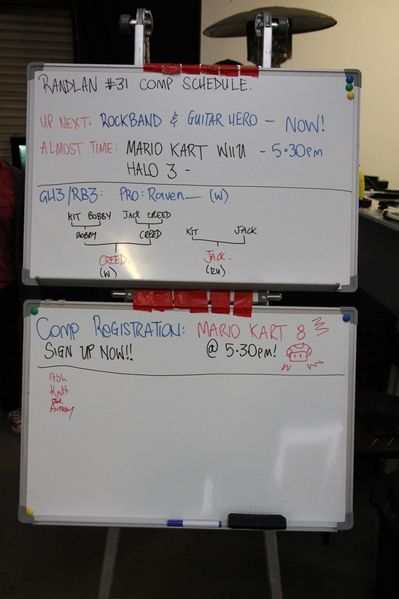 RANDLAN #31 COMP SCHEDULE.
UP NEXT: ROCKBAND & GUITAR HERO - NOW!
ALMOST TIME: MARIO KART WIIU - 5·30pm
HALO 3 -
GH3/RB3: PRO: Raven_ (W)
KIT BOBBY JACK CREED
BOBBY CREED KIT JACK
CREED. JACK.
(W) (RU)
COMP REGISTRATION: MARIO KART 8
SIGN UP NOW!! @ 5·30pm!
Ash
Katt
Anthony